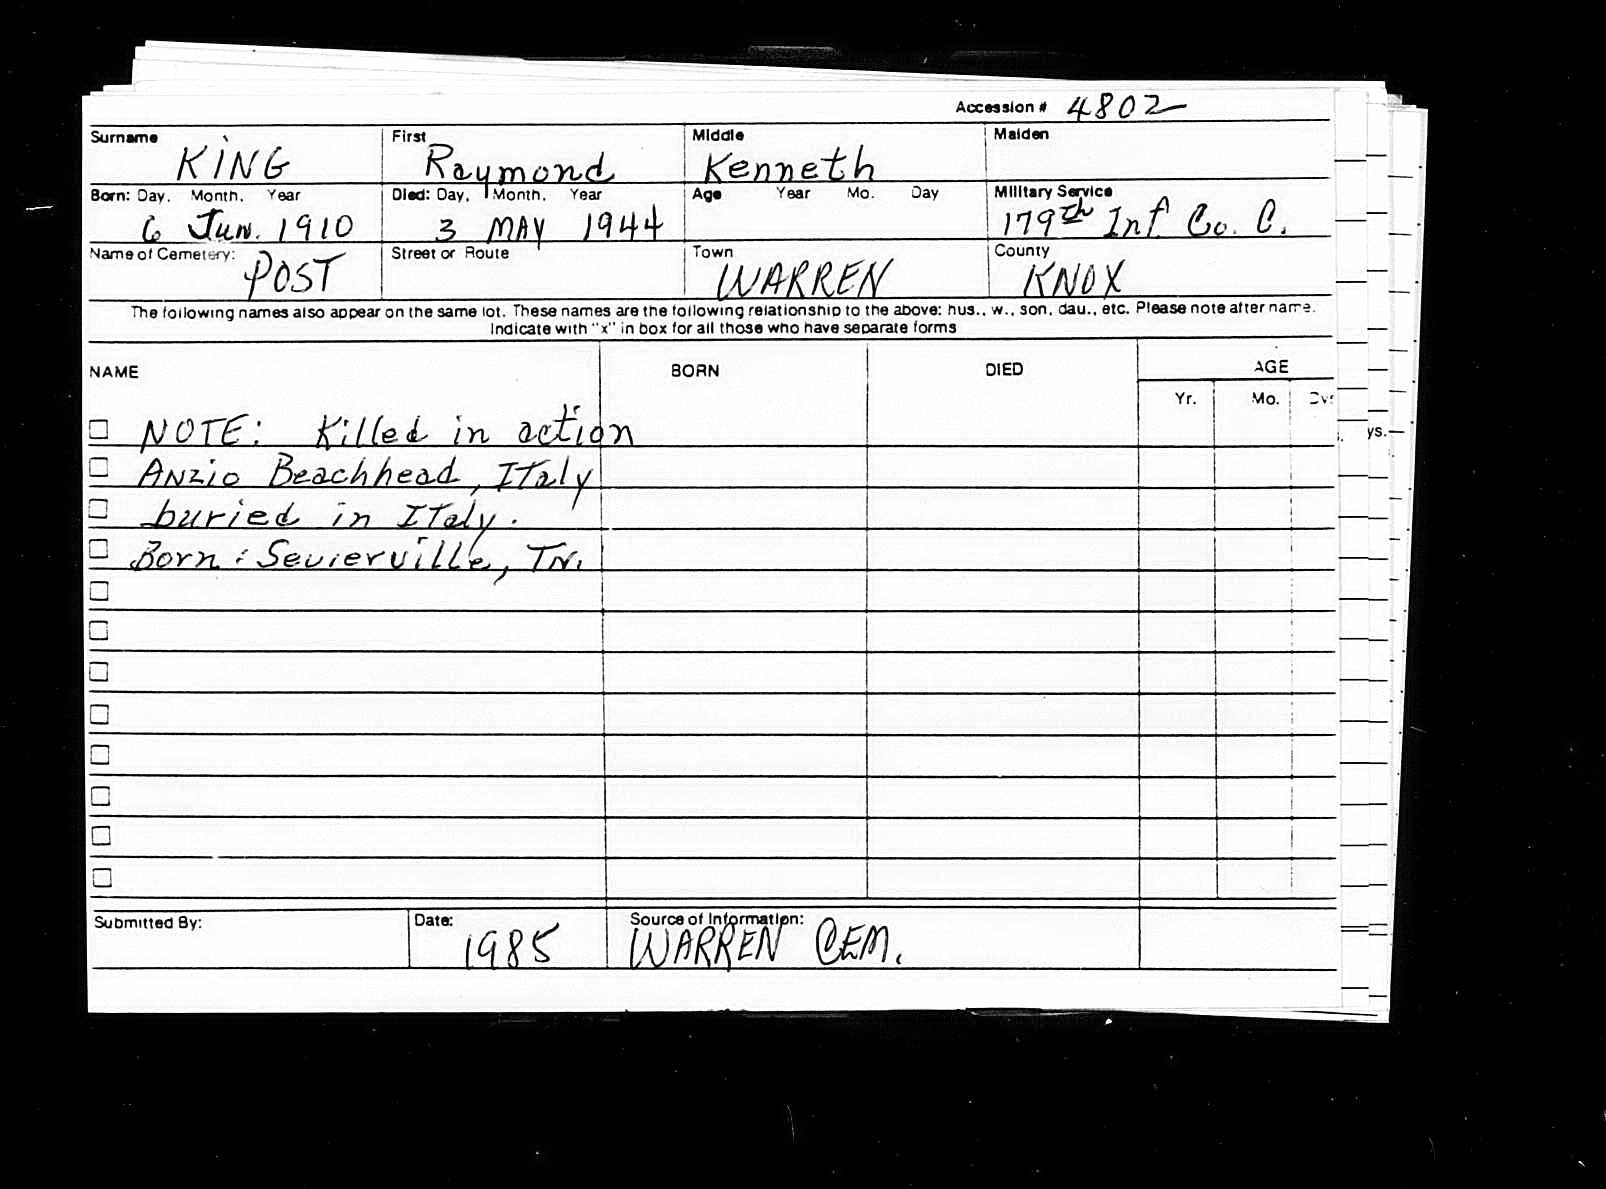 Accession # 4802
Surname KING First Raymond Middle Kenneth Maiden
Born: Day, Month, Year 6 Jun. 1910 Died: Day, Month, Year 3 MAY 1944 Age Year Mo. Day Military Service 179th Inf. Co. C.
Name of Cemetery: POST Street or Route Town WARREN County KNOX
The following names also appear on the same lot. These names are the following relationship to the above: hus., w., son, dau., etc. Please note after name.
Indicate with "x" in box for all those who have separate forms
NAME BORN DIED AGE
Yr. Mo. Dys
ys.
NOTE: Killed in action
ANZIO Beachhead, ITaly
buried in ITaly.
Born: Sevierville, TN.
Submitted By: Date: 1985 Source of Information: WARREN CEM.